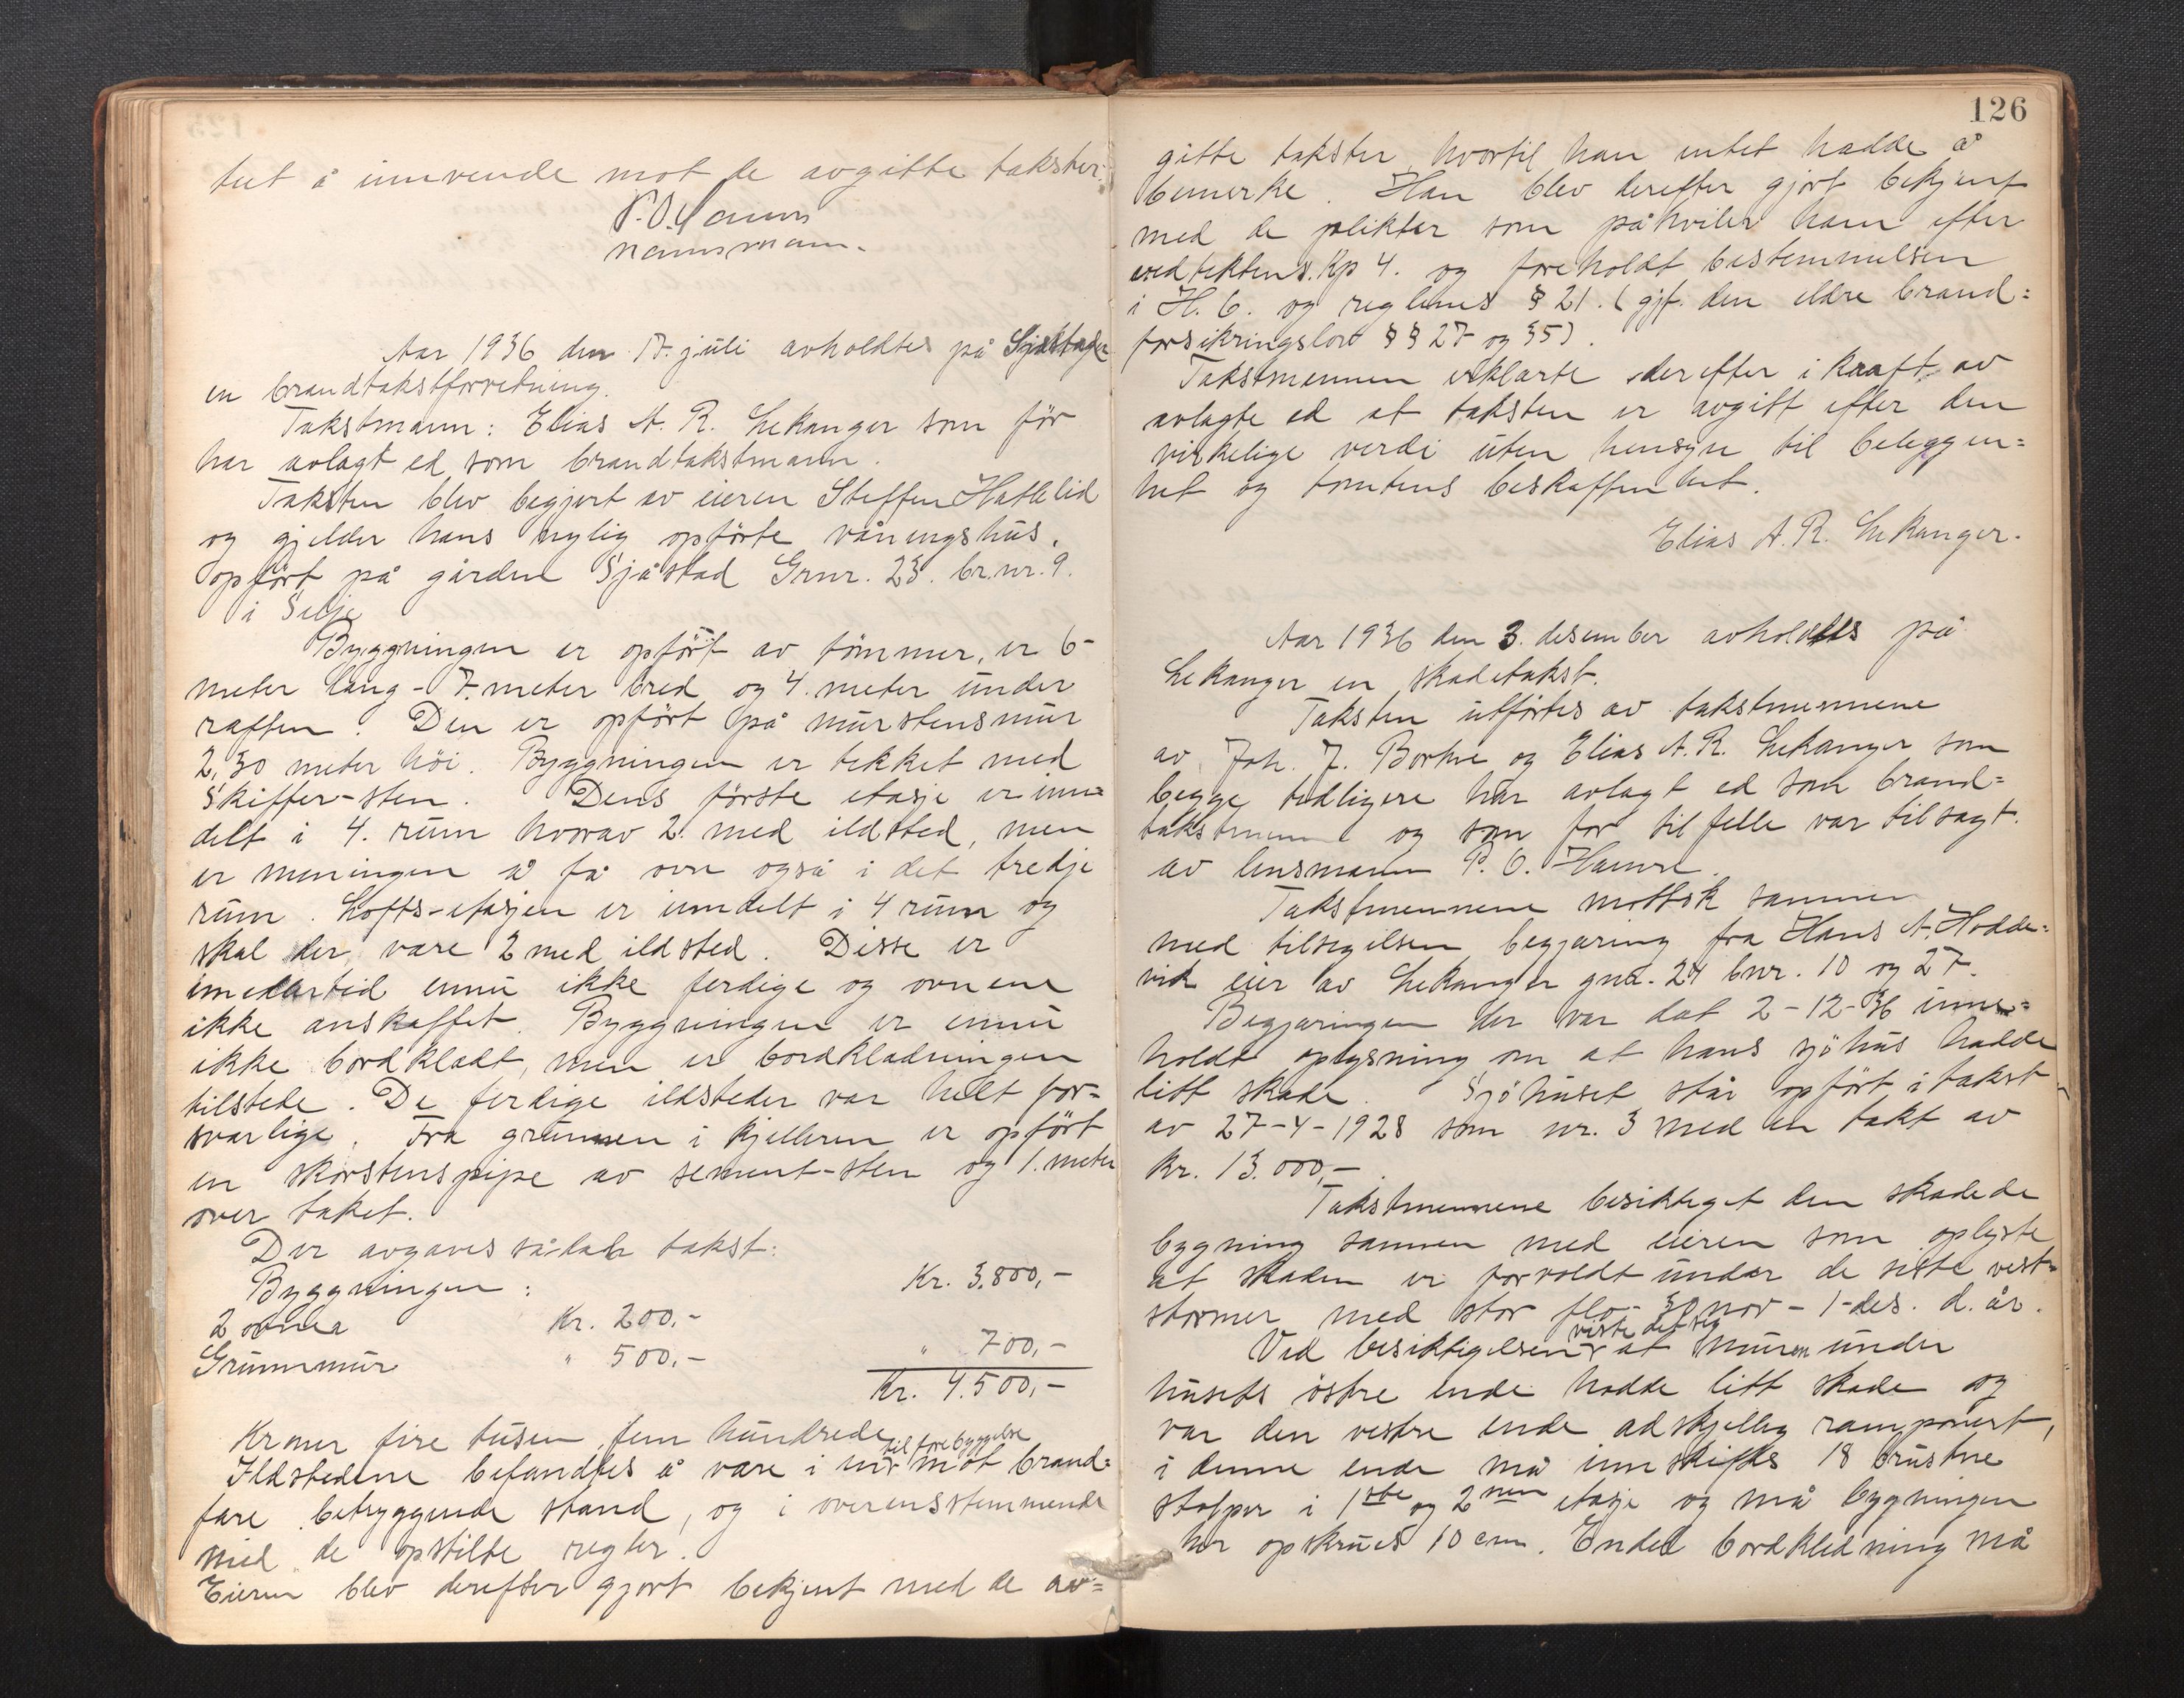 tet å innvende mot de avgitte takster.
P. O. Hamre
Aar 1936 den 17. juli avholdtes på
en brandtakstforretning.
Takstmann: Elias A. R. Lekanger som før
har avlagt ed som brandtakstmann.
Taksten blev begjert av eieren Steffen Hatlelid
og gjelder hans nylig opförte våningshus,
opfört på gården Sjåstad Grnr. 23. br.nr. 9.
i Selje
Byggningen er opfört av tömmer, er 6-
meter lang - 7. meter bred og 4. meter under
raften. Den er opfört på murstensmur
2,30 meter höi. Byggningen er tekket med
Skiffer-sten. Dens förste etasje er inn=
delt i 4. rum hvorav 2. med ildsted, men
er meningen å få ovn også i det tredje
rum. Lofts-etasjen er inndelt i 4 rum og
skal der være 2 med ildsted. Disse er
imedlertid ennu ikke ferdige og ovnene
ikke anskaffet. Byggningen er ennu
ikke bordklædt, men er bordklædningen
tilstede. De ferdige ildsteder var helt for-
svarlige. Fra grunnen i kjelleren er opfört
en skorstenspipe av sement-sten og 1. meter
over taket.
Der avgaves sådan takst:
Byggningen: Kr. 3.800,-
2 ovner Kr. 200,-
Grunnmur " 500,- " 700,-
Kr. 4.500,-
Kroner fire tusen fem hundrede
til forebyggelse
Ildstedene befandtes å være i mot brand=
fare betryggende stand, og i overensstemmende
med de opstilte regler.
Eieren blev derefter gjort bekjent med de av=
126
gitte takster, hvortil han intet hadde å
bemerke. Han blev derefter gjort bekjent
med de plikter som påhviler ham efter
vedtektens Kp 4. og foreholdt bestemmelsen
i H. b. og reglenes § 21. (gjf. den eldre brand=
forsikringslov §§ 27 og 35).
Takstmennen erklærte derefter i kraft av
avlagte ed at taksten er avgitt efter den
virkelige verdi uten hensyn til beliggen=
het og tomtens beskaffenhet.
Elias A. R. Lekanger.
Aar 1936 den 3. desember avholdtes på
Lekanger en skadetakst.
Taksten utförtes av takstmennene
av Joh. J. Borkve og Elias A. R. Lekanger som
begge tidligere har avlagt ed som brand=
takstmenn og som for tilfelle var tilsagt.
av lensmann P. O. Hamre.
Takstmennene mottok sammen
med tilsigelsen begjæring fra Hans A. Hodde=
vik eier av Lekanger gnr. 24 bnr. 10 og 27.
Begjæringen der var dat 2-12-36 inne=
holdt oplysning om at hans sjöhus hadde
litt skade. Sjöhuset står opfört i takst
av 27-4-1928 som nr. 3 med en takt av
Kr. 13.000,-
Takstmennene besiktiget den skadede
bygning sammen med eieren som oplyste
at skaden er forvoldt under de siste vest=
stormer med stor flo- 30 nov - 1-des. d. år.
viste det sig
Ved besiktigelsen at muren under
husets östre ende hadde litt skade og
var den vestre ende adskjellig ramponert,
i denne ende må innskiftes 18 brustne
stolper i 1ste og 2nen etasje og må bygningen
her opskrues 10 cm. Endel bordkledning må